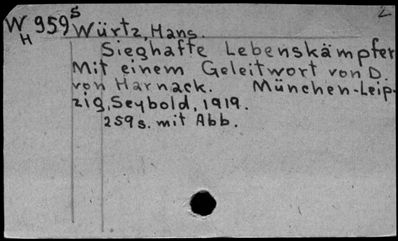 W 959 S Würtz, Hans.
H
Sieghafte Lebenskämpfer
Mit einem Geleitwort von D.
von Harnack. München-Leip-
zig, Seybold, 1919.
259 s. mit Abb.